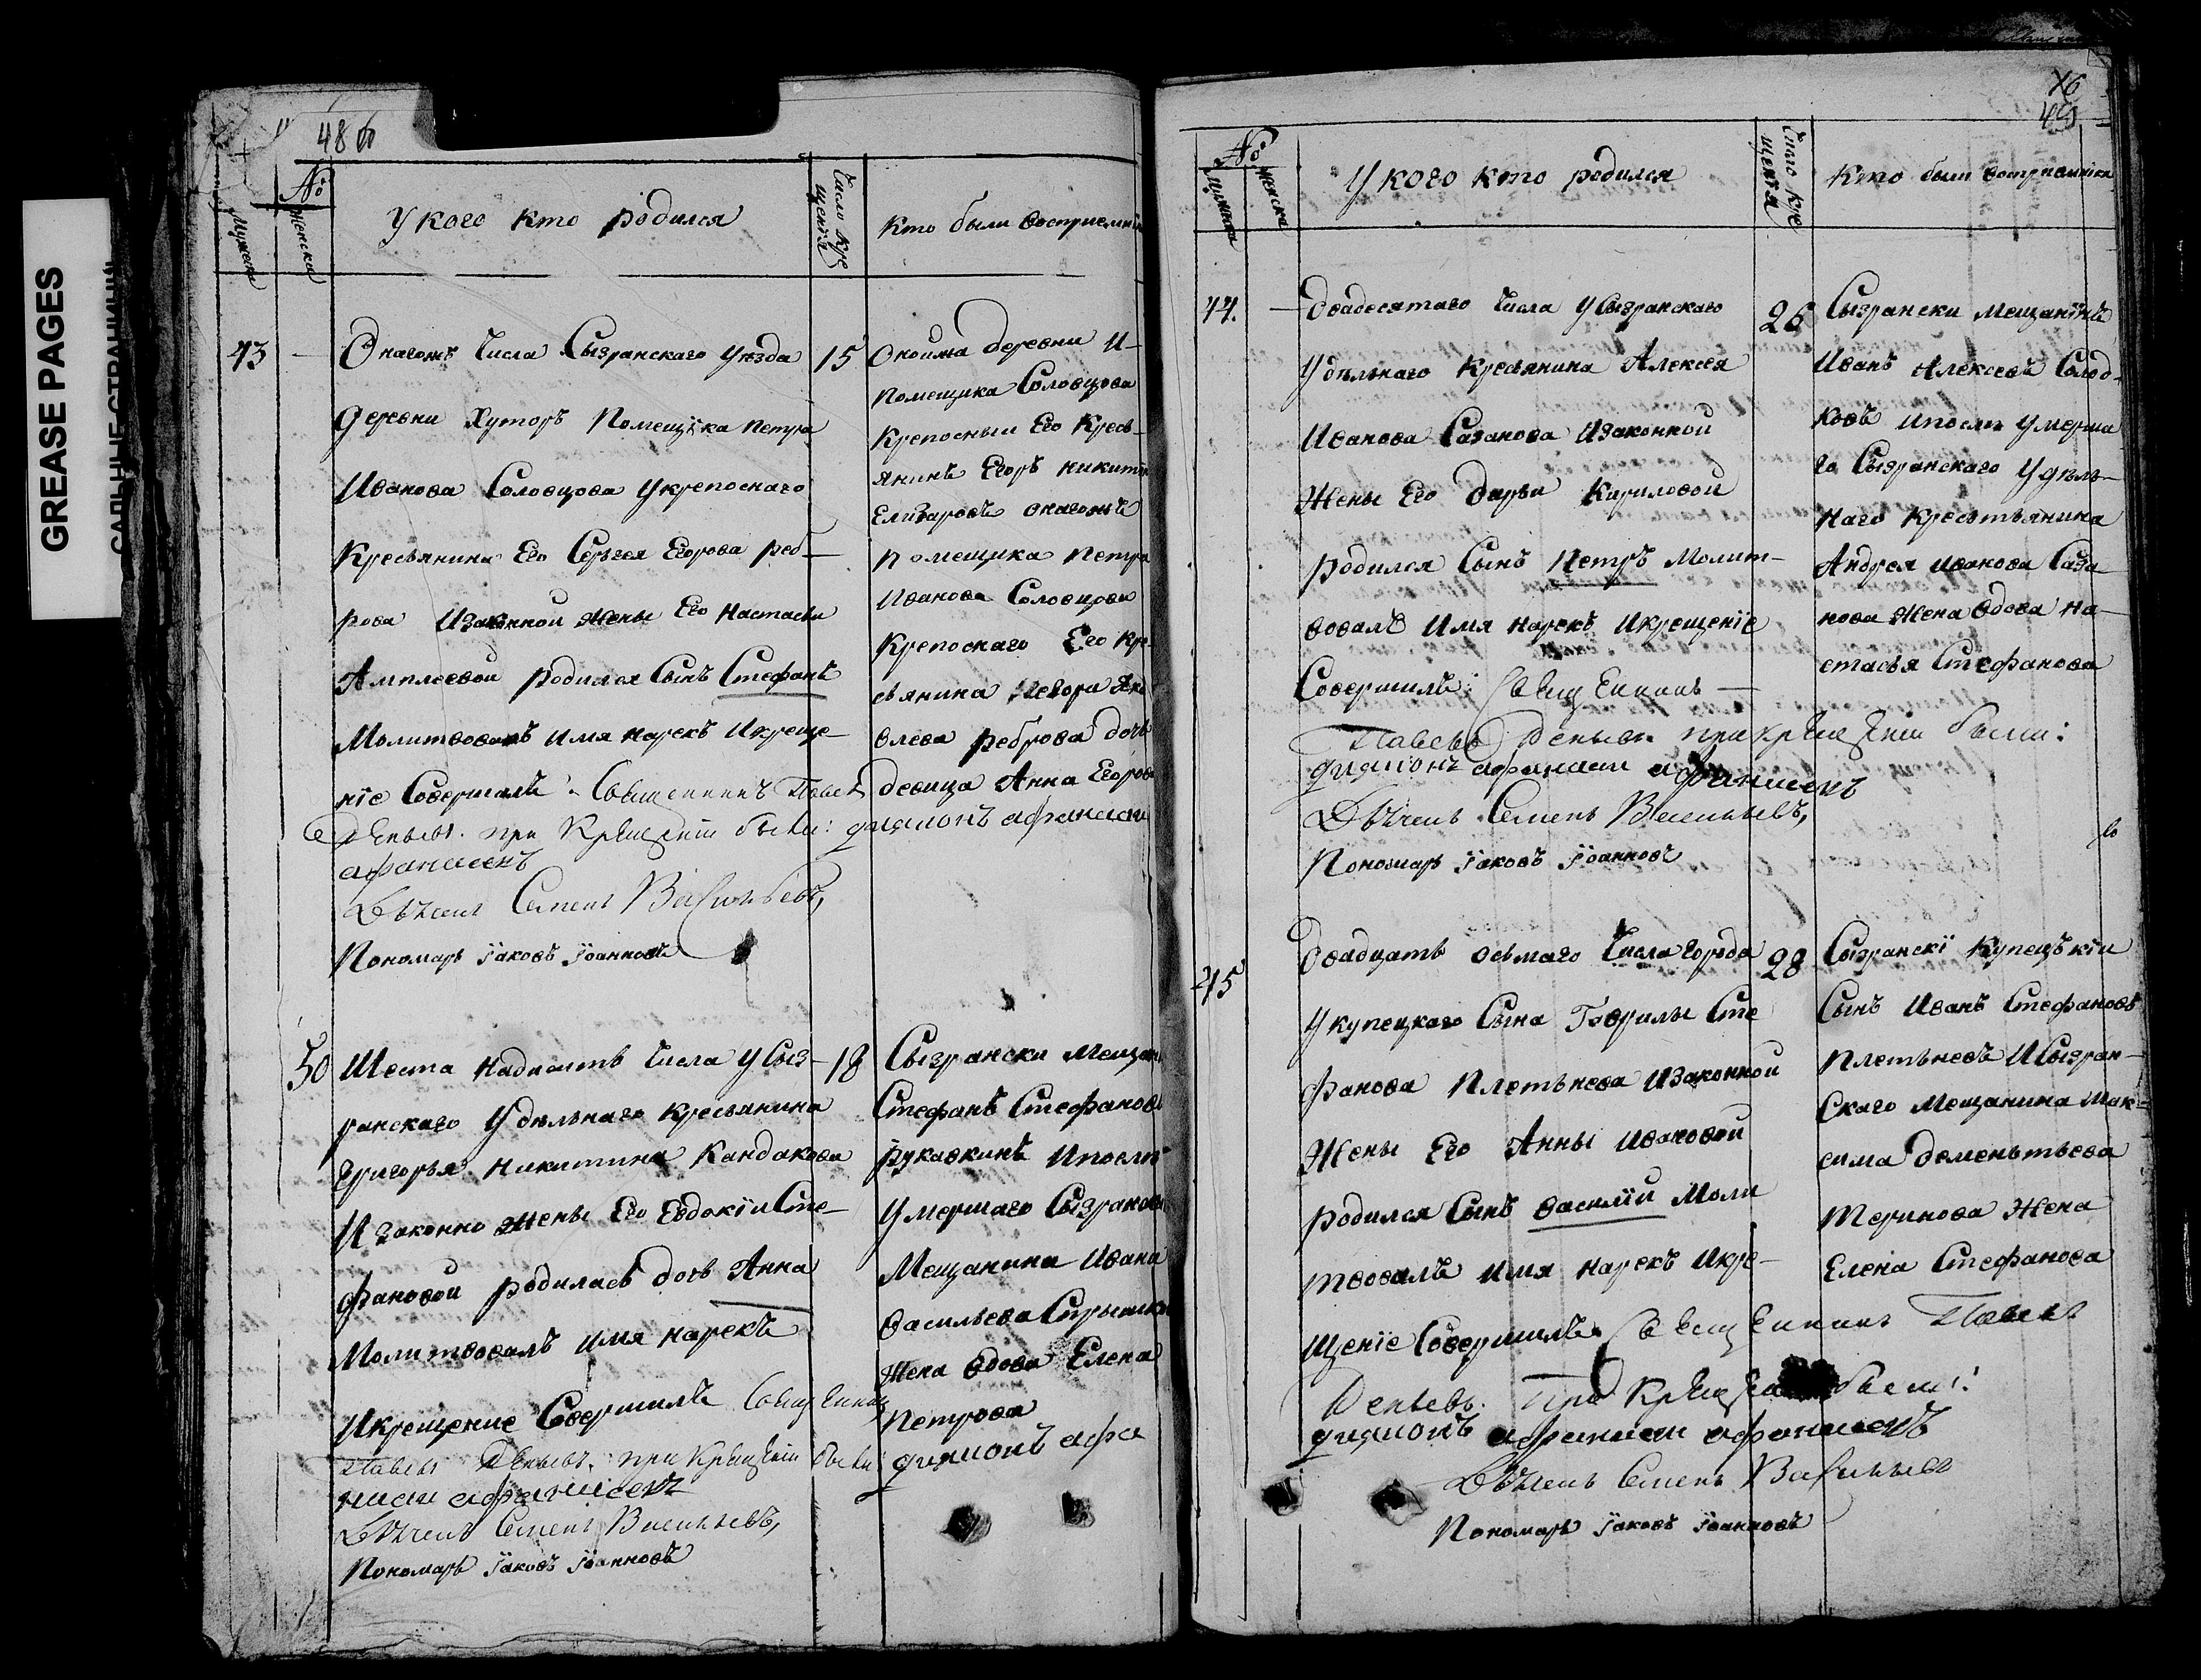 GREASE PAGES
САЛЬНЫЕ СТРАНИЦЫ
48 б
№
Мужеска
Женска
У кого кто родился
Число кре
щения
Кто были восприемни
43
Онагожъ Числа Сызранскаго уезда
деревни Хуторъ Помещика Петра
Иванова Соловцова Укрепоснаго
Кресьянина Его Сергея Егорова реб
рова Изаконной жены Его Настасьи
родился Сынъ Стефанъ
Молитвовалъ имя нарекъ Икреще
ніе Совершилъ: Священникъ Павел
Деньевъ. при Крещеніи были: афанасіи
афанасьевъ
Дьячекъ Семенъ Васильевъ,
Пономарь Іаковъ Іоанновъ
15
Онойжа деревни И
помещика Соловцова
Крепосныи Его Кресь
янинъ Егоръ Никитин
Елизаровъ онагожъ
помещика Петра
Иванова Соловцова
Крепоснаго Его Кре
сьянина Яко
влева реброва дочь
девица Анна Егорова
50
Шеста надцать Числа у Сыз
ранскаго Удѣльнаго кресьянина
Григорья Никитина Кандакова
Изаконно жены Его Евдокіи Сте
фановой родилась дочь Анна
Молитвовалъ имя нарекъ
Икрещение Совершилъ Священникъ
Павелъ Деньевъ. при Крещеніи были
насіи афанасіевъ
Дьячекъ Семенъ Васильевъ,
Пономарь Іаковъ Іоанновъ
18
Сызрански Мещан
Стефанъ Стефановъ
Рукавкинъ Ипослѣ
Умершаго Сызранск
Мещанина Ивана
Васильева
Жена Вдова Елена
Петрова
афа
49
№
Женска
У кого кто родился
Число кре
щения
Кто были восприемники
44.
двадесятаго Числа У Сызранскаго
Удѣльнаго Кресьянина Алексея
Иванова Сазанова Изаконной
Жены Его Дарьи Кириловой
родился Сынъ Петръ Молит
вовалъ Имя нарекъ Икрещеніе
Совершилъ: Священникъ
Павелъ Деньевъ при крещеніи были:
афанасіи афанасіевъ
Дьячекъ Семенъ Васильевъ,
Пономарь Іаковъ Іоанновъ
26
Сызрански Мещанинъ
Иванъ Алексеевъ Солод
ковъ ипослѣ умерша
го Сызранскаго Удѣль
наго Кресьтьянина
Андрея Иванова Саза
нова Жена Вдова На
стасья Стефанова
45
Двадцать осьмаго Числа города
У купецкаго Сына Гаврилы Сте
фанова Плетьнева Изаконной
Жены Его Анны Ивановой
родился Сынъ Василіи Моли
твовалъ имя нарекъ Икре
щеніе Совершилъ Священникъ Павелъ
Деньевъ. При Крещеніи были:
афанасіи афанасіевъ
Дьячекъ Семенъ Васильевъ
Пономарь Іаковъ Іоанновъ
28
Сызранскі Купецъкіи
Сынъ Иванъ Стефановъ
Плетьневъ И Сызран
Скаго Мещанина Мак
сима Деменьтьева
Теринова Жена
Елена Стефанова